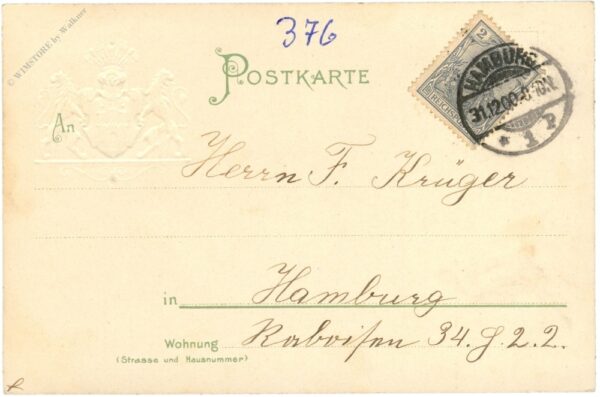 © WIMSTORE by Walkner
376
POSTKARTE
2
REICHSPOST
HAMBURG
31.12.00.
* 1 P
An
Herrn F. Krüger
in Hamburg
Wohnung Raboisen 34. J. 2.2.
(Strasse und Hausnummer)